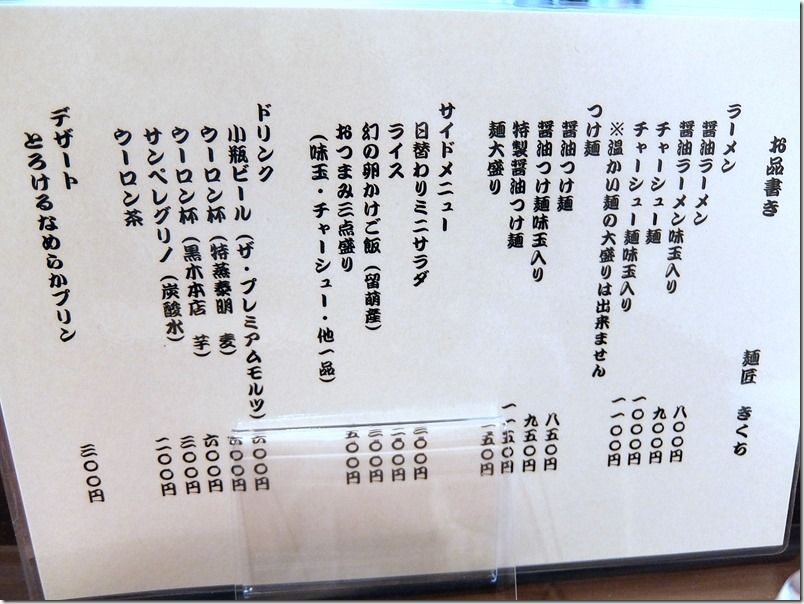 お品書き　麺匠　きくち
ラーメン
醤油ラーメン　八〇〇円
醤油ラーメン味玉入り　九〇〇円
チャーシュー麺　一〇〇〇円
チャーシュー麺味玉入り　一一〇〇円
※温かい麺の大盛りは出来ません
つけ麺
醤油つけ麺　八五〇円
醤油つけ麺味玉入り　九五〇円
特製醤油つけ麺　一一五〇円
麺大盛り　一五〇円
サイドメニュー
日替わりミニサラダ　三〇〇円
ライス　二〇〇円
幻の卵かけご飯（留萌産）　三〇〇円
おつまみ三点盛り　五〇〇円
（味玉・チャーシュー・他一品）
ドリンク
小瓶ビール（ザ・プレミアムモルツ）　六〇〇円
ウーロン杯（特蒸泰明　麦）　六〇〇円
ウーロン杯（黒木本店　芋）　六〇〇円
サンペレグリノ（炭酸水）　三〇〇円
ウーロン茶　二〇〇円
デザート
とろけるなめらかプリン　三〇〇円